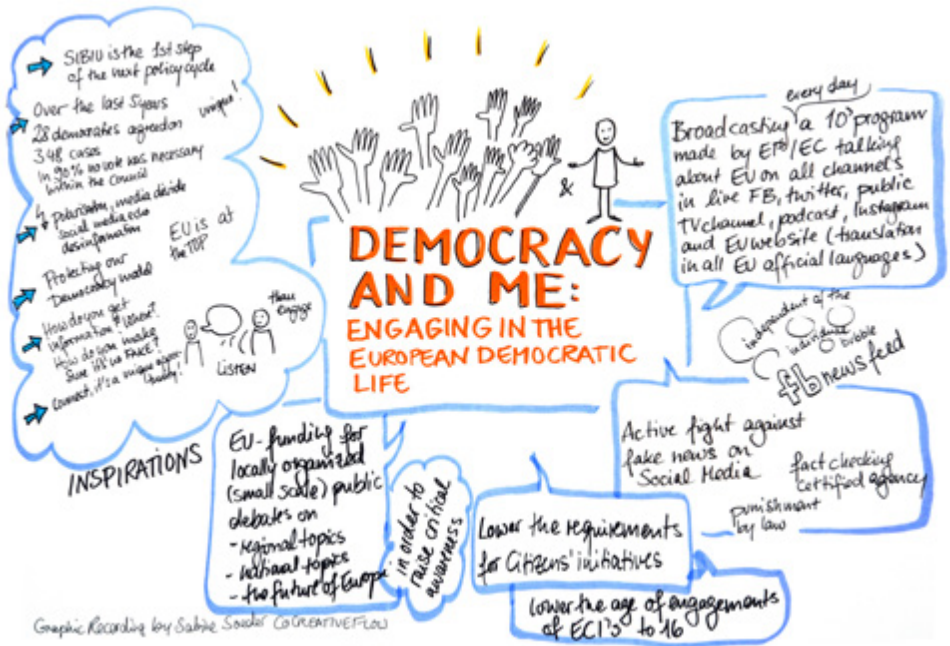 SIBIU is the 1st step
of the next policy cycle
Over the last 5 years
28 democraties agreed on
348 cases
unique!
In 90% no vote was necessary
within the Council
polarisation, media divide
social media echo
desinformation
EU IS at
the TOP
Protecting our
Democracy model
How do you get
information? Where?
How do you make
sure it's no FAKE?
Connect, it's a unique oppor-
tunity!
than
engage
LISTEN
INSPIRATIONS
&
DEMOCRACY
AND ME:
ENGAGING IN THE
EUROPEAN DEMOCRATIC
LIFE
every day
Broadcasting a 10' program
made by EP/EC talking
about EU on all channels
in live FB, twitter, public
TV channel, podcast, Instagram
and EU website (translation
in all EU official languages)
independent of the
individual
bubble
fb newsfeed
Active fight against
fake news on
Social Media
fact checking
certified agency
punishment
by law
EU-funding for
locally organized
(small scale) public
debates on
- regional topics
- national topics
- the future of Europe
in order to
raise critical
awareness
Lower the requirements
for Citizens' initiatives
Lower the age of engagements
of ECI's to 16
Graphic Recording by Sabine Soeder CoCREATIVEFLOW